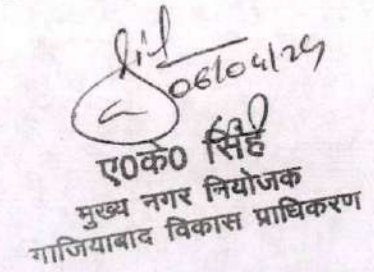 06/04/24
ए0के0 सिंह
मुख्य नगर नियोजक
गाजियाबाद विकास प्राधिकरण